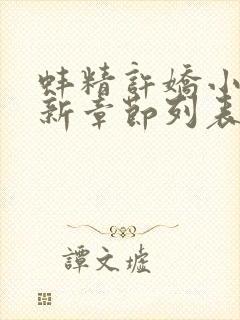 蚌精許嬌小
新章節列表
譚文墟